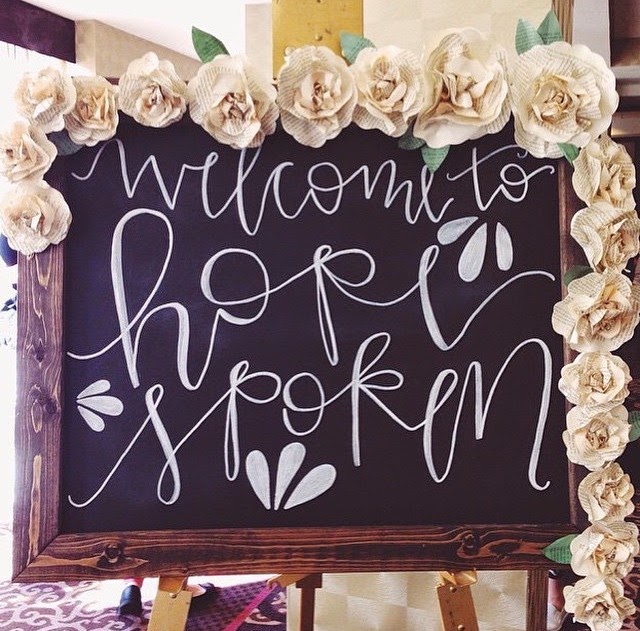 welcome to
hope
spoken